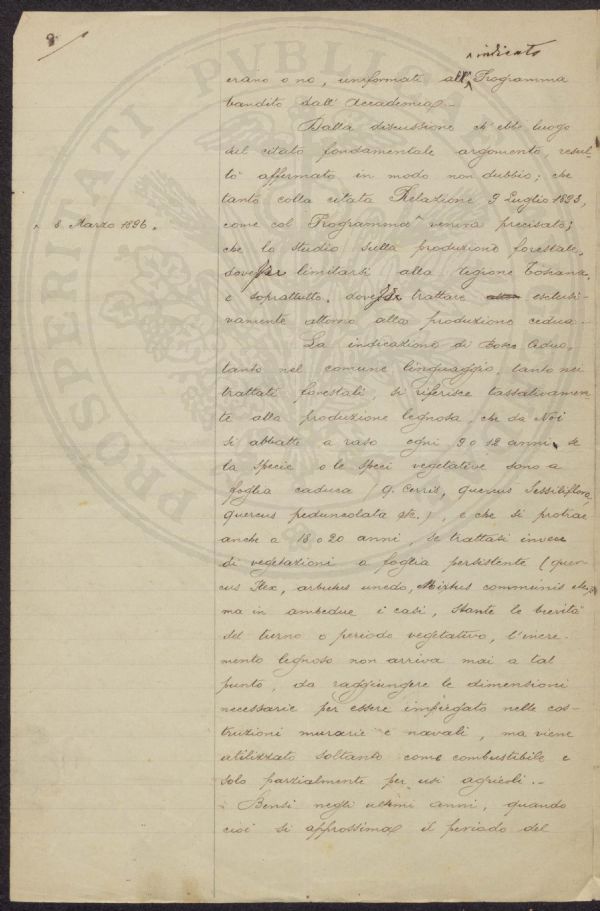 9
indicato
erano o no, uniformati all' Programma
bandito dall' Accademia.-
Dalla discussione ch'ebbe luogo
sul citato fondamentale argomento, resul-
tò affermato in modo non dubbio; che
tanto colla citata Relazione 9 Luglio 1893,
8 Marzo 1896.
come col Programma venina precisato;
che lo studio sulla produzione forestale,
limitarsi alla regione Toscana.
e soprattutto, trattare esclusi-
vamente attorno alla produzione cedua.-
La indicazione di Bosco Ceduo,
tanto nel comune linguaggio, tanto nei
trattati forestali, si riferisce tassativamen-
te alla produzione legnosa, che da Noi
si abbatte a raso ogni 9 o 12 anni, se
la specie o le speci vegetative sono a
foglia caduca (q. Cerris, quercus Sessiliflora,
quercus pedunculata etc.), e che si protrae
anche a 18 o 20 anni, se trattasi invece
di vegetazioni a foglia persistente (quer-
cus Ilex, arbutus unedo, Mirthus communis
ma in ambedue i casi, stante le brevità
del turno o periodo vegetativo, l'incre-
mento legnoso non arriva mai a tal
punto, da raggiungere le dimensioni
necessarie per essere impiegato nelle cos-
truzioni murarie e navali, ma viene
utilizzato soltanto come combustibile e
solo parzialmente per usi agricoli.-
Bensì negli ultimi anni, quando
cioè si approssima il periodo del
PROSPERITATI PVBLICAE